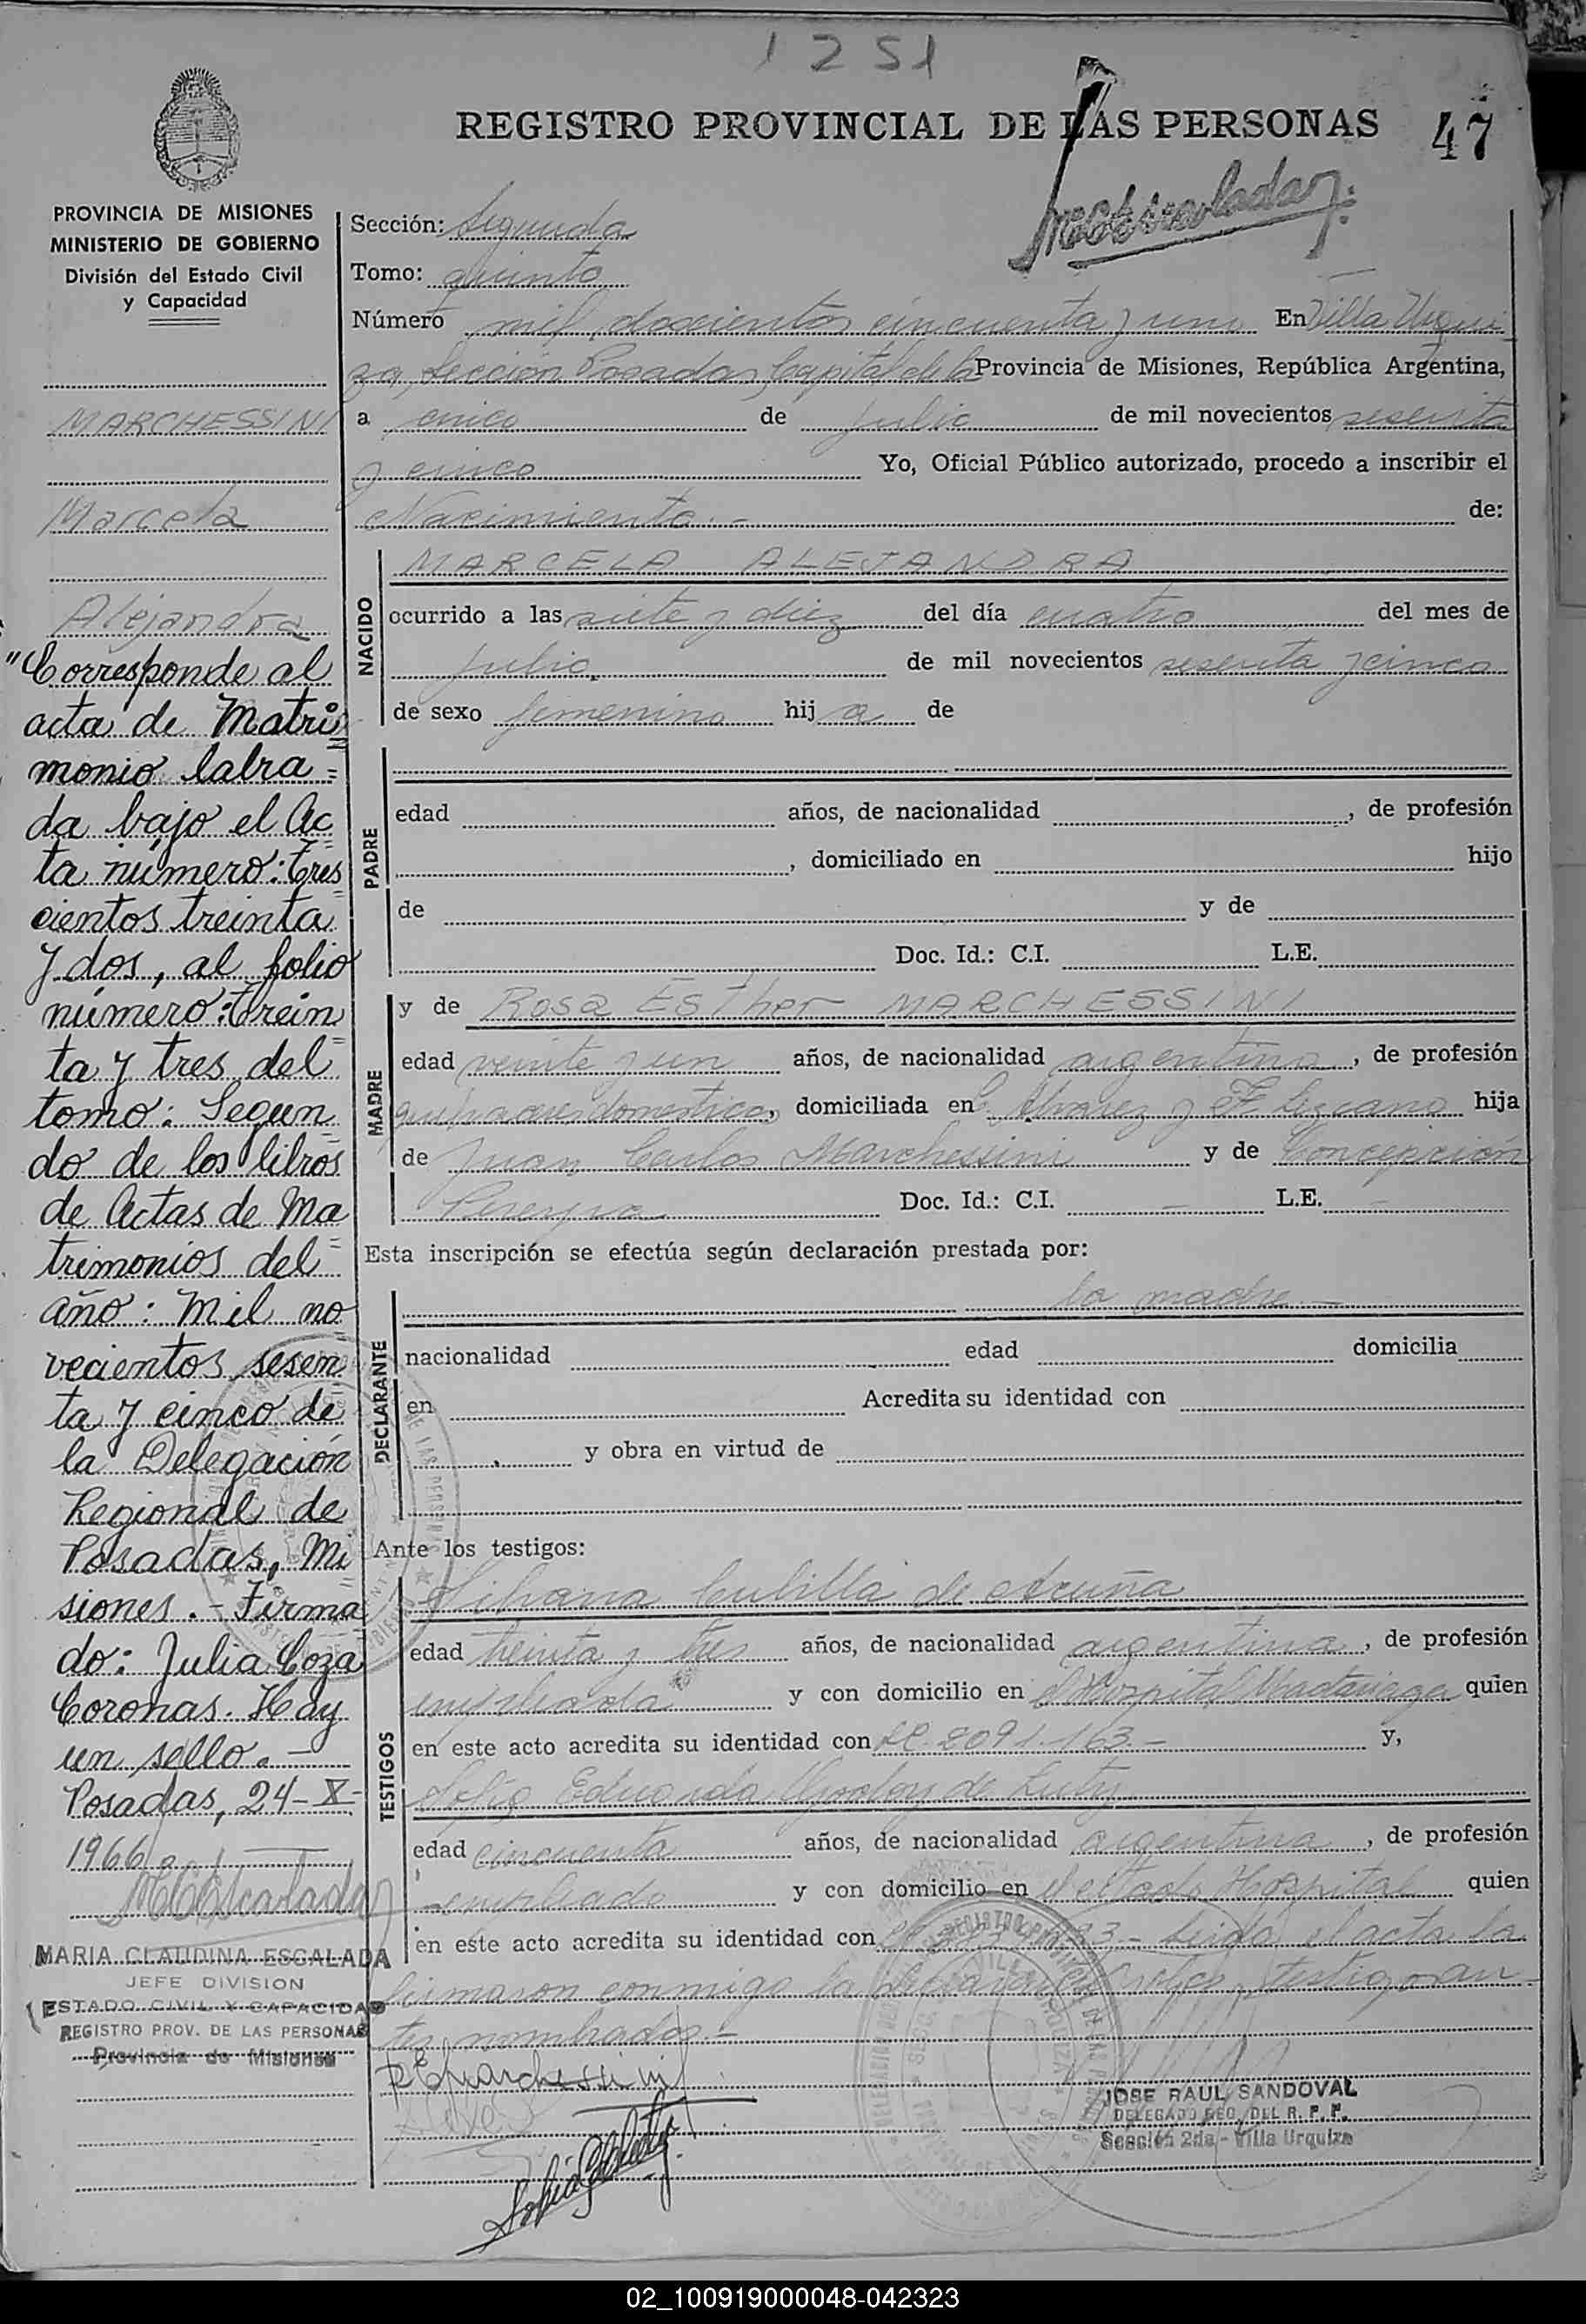 1251
REGISTRO PROVINCIAL DE LAS PERSONAS 47
PROVINCIA DE MISIONES
MINISTERIO DE GOBIERNO
División del Estado Civil
y Capacidad
MARCHESSINI
Marcela
Alejandra
"Corresponde al
acta de Matri=
monio labra=
da bajo el Ac=
ta número: Tres=
cientos treinta
y dos, al folio
número: Trein=
ta y tres del
tomo: Segun=
do de los libros
de Actas de Ma=
trimonios del
año: Mil no=
vecientos sesen=
ta y cinco de
la Delegación
Regional de
Posadas, Mi=
siones.- Firma=
do: Julia Coza
Coronas. Hay
un sello.-
Posadas, 24-X-
1966
MCEscalada
MARIA CLAUDINA ESCALADA
JEFE DIVISION
ESTADO CIVIL Y CAPACIDAD
REGISTRO PROV. DE LAS PERSONAS
Provincia de Misiones
Sección: Segunda
Tomo: quinto
Número mil doscientos cincuenta y uno En Villa Urqui
za, Sección Posadas, Capital de la Provincia de Misiones, República Argentina,
a cinco de julio de mil novecientos sesenta
y cinco Yo, Oficial Público autorizado, procedo a inscribir el
Nacimiento.- de:
NACIDO
MARCELA ALEJANDRA
ocurrido a las siete y diez del día cuatro del mes de
julio de mil novecientos sesenta y cinco
de sexo femenino hija de
PADRE
edad años, de nacionalidad , de profesión
, domiciliado en hijo
de y de
Doc. Id.: C.I. L.E.
MADRE
y de Rosa Esther MARCHESSINI
edad veinte y un años, de nacionalidad argentina, de profesión
quehaceres domesticos, domiciliada en Alvarez y F. Lezcano hija
de Juan Carlos Marchessini y de Concepción
Pereyra Doc. Id.: C.I. - L.E. -
Esta inscripción se efectúa según declaración prestada por:
DECLARANTE
la madre.-
nacionalidad edad domicilia
en Acredita su identidad con
y obra en virtud de
Ante los testigos:
TESTIGOS
Silvana Cubilla de Acuña
edad treinta y tres años, de nacionalidad argentina, de profesión
empleada y con domicilio en Hospital Madariaga quien
en este acto acredita su identidad con 2091.163- y,
Sofía Eduarda de Luty
edad cincuenta años, de nacionalidad argentina, de profesión
empleada y con domicilio en el citado Hospital quien
en este acto acredita su identidad con leida el acta la
firmaron conmigo la y testigos an
tes nombrados.-
REMarchessini
JOSE RAUL SANDOVAL
DELEGADO SEC. DEL R. P. P.
Sección 2da - Villa Urquiza
02_100919000048-042323